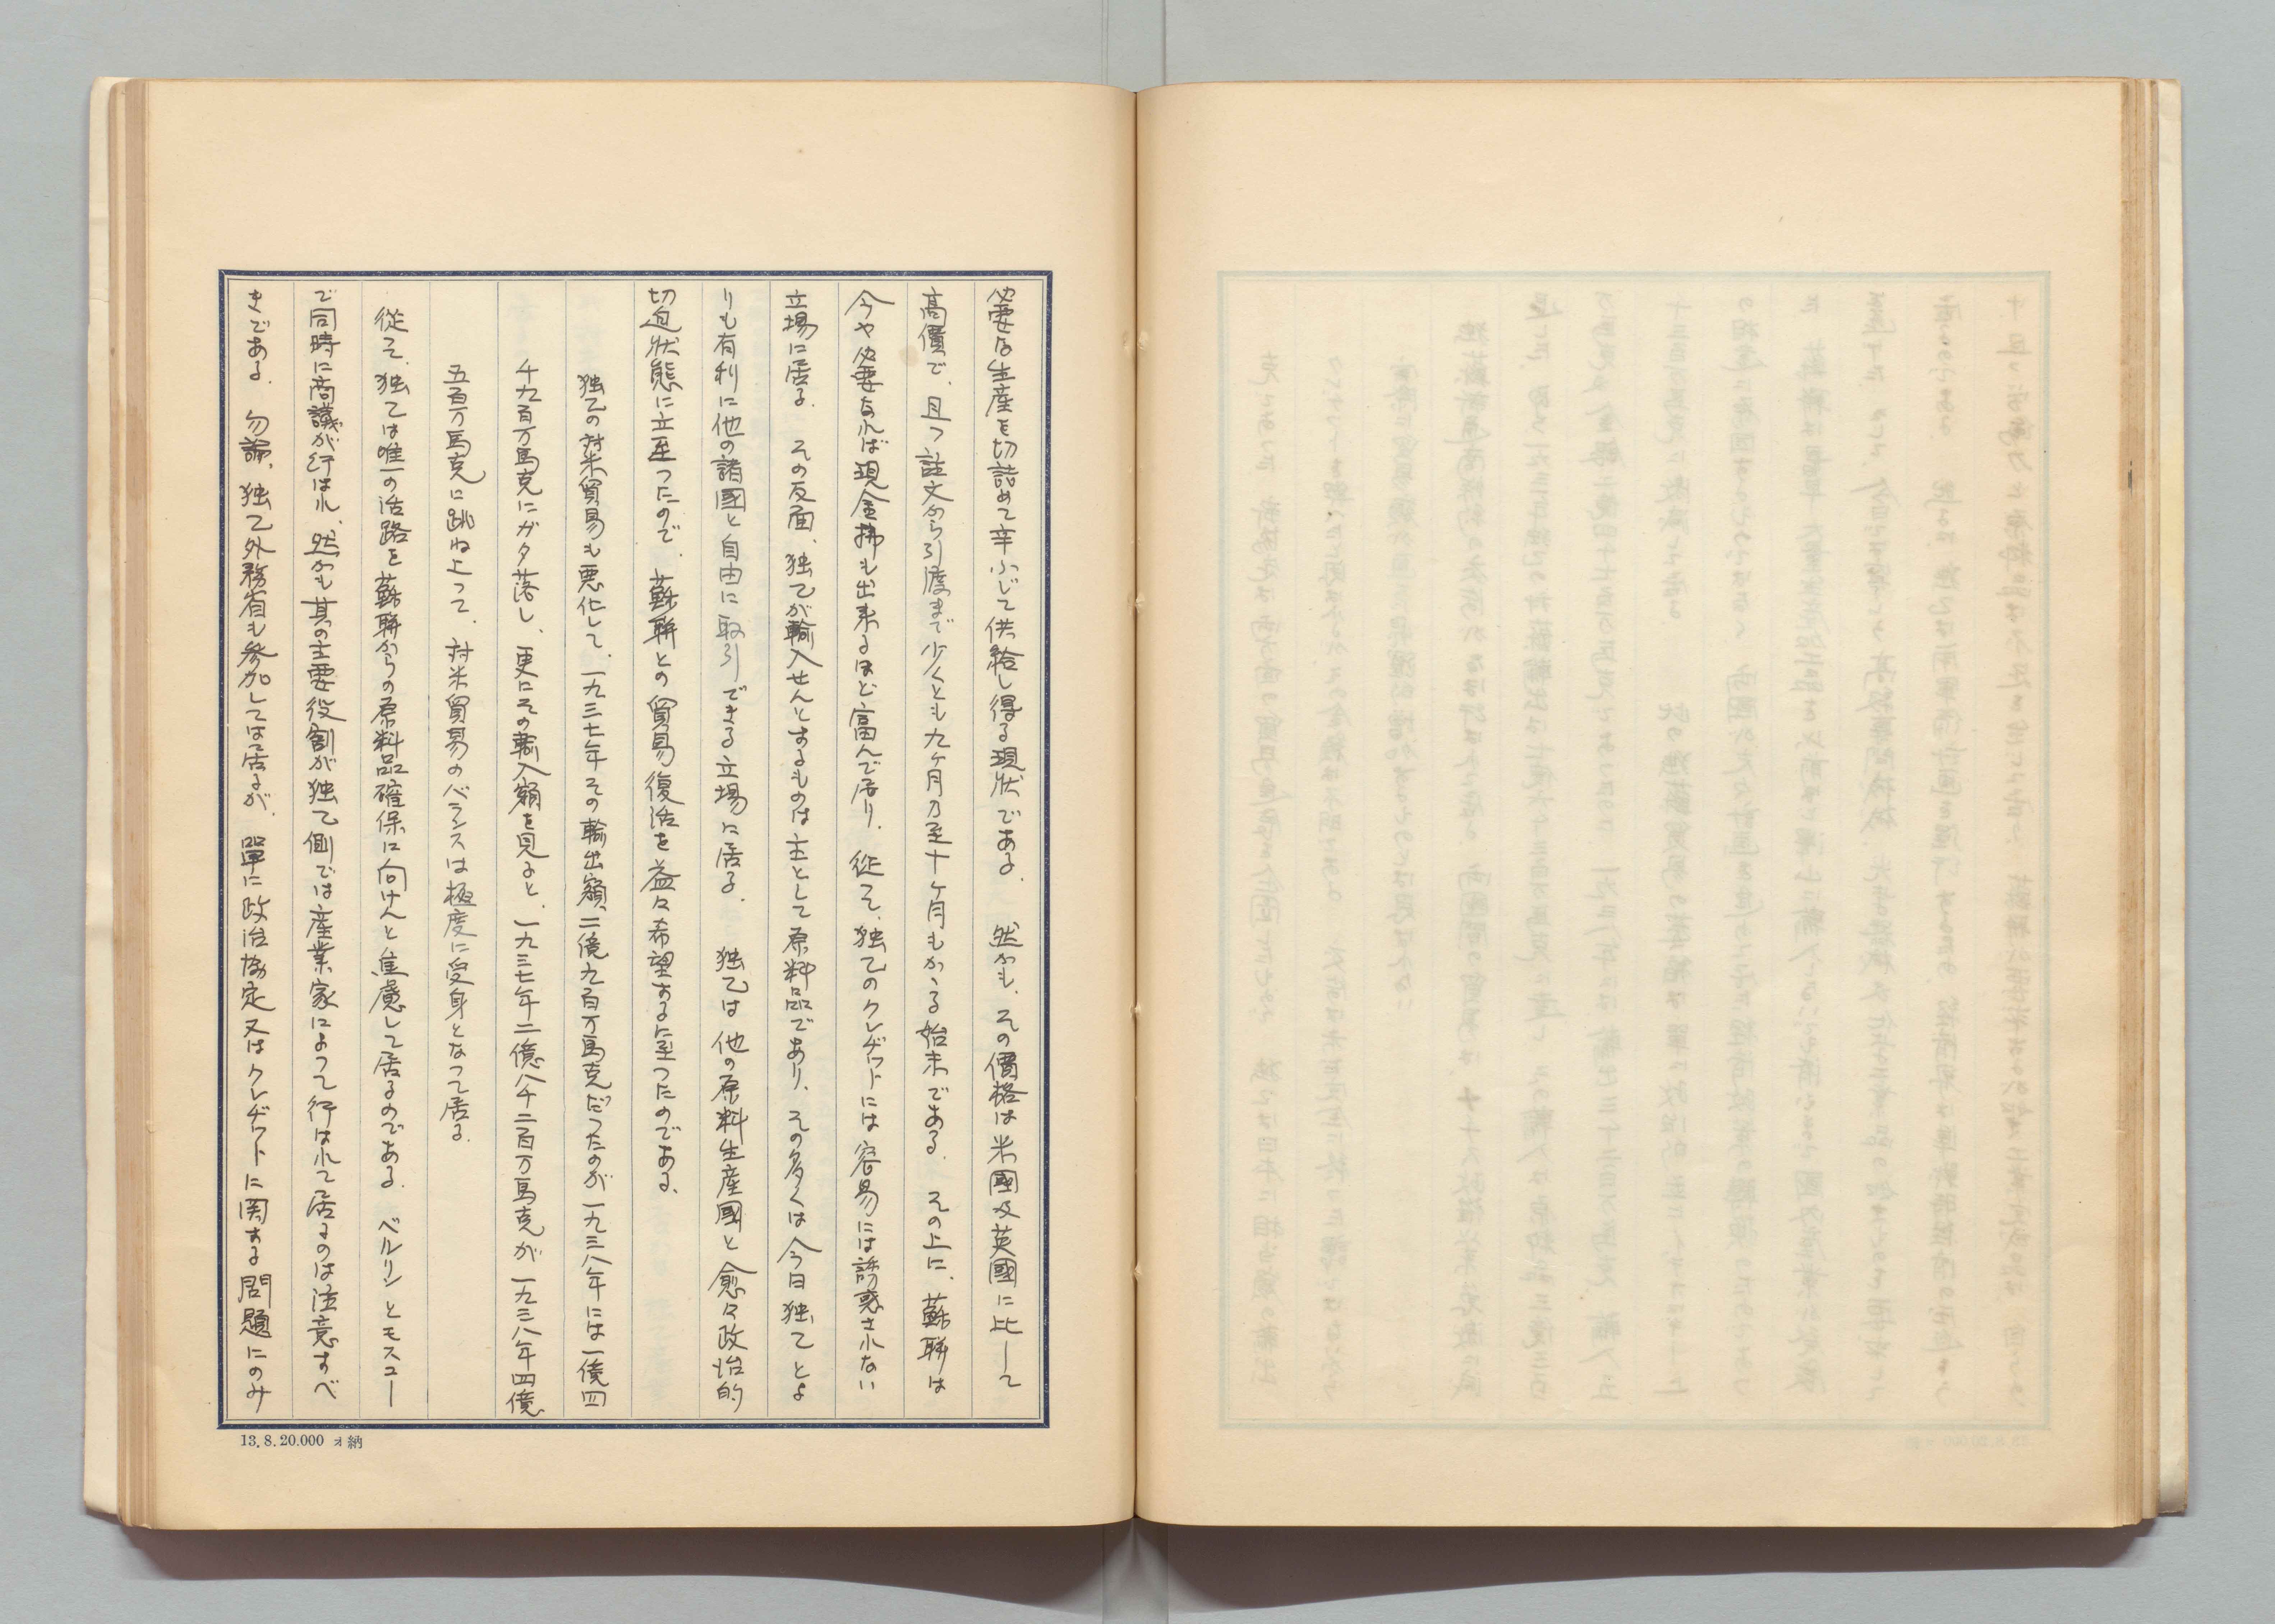 必要な生産を切詰めて辛ふじて供給し得る現状である。然かも、その價格は米國及英國に比して
高價で、且つ註文から引渡まで少くとも九ケ月乃至十ケ月もかゝる始末である。その上に、蘇聯は
今や必要なれば現金拂も出来るほど富んで居り、従て、独乙のクレヂットには容易には誘惑されない
立場に居る。その反面、独乙が輸入せんとするものは主として原料品であり、その多くは今日独乙とよ
りも有利に他の諸國と自由に取引できる立場に居る。独乙は他の原料生産國と愈々政治的
切迫状態に立至つたので、蘇聯との貿易復活を益々希望するに至つたのである、
独乙の対米貿易も悪化して、一九三七年その輸出額、二億九百万馬克だつたのが一九三八年には一億四
千九百万馬克にガタ落し、更にその輸入額を見ると、一九三七年二億八千二百万馬克が一九三八年四億
五百万馬克に跳ね上つて、対米貿易のバランスは極度に受身となつて居る。
従て、独乙は唯一の活路を蘇聯からの原料品確保に向けんと焦慮して居るのである。ベルリンとモスコー
で同時に商議が行はれ、然かも其の主要役割が独乙側では産業家によつて行はれて居るのは注意すべ
きである。勿論、独乙外務省も参加しては居るが、單に政治協定又はクレヂットに関する問題にのみ
13.8.20.000 ォ納